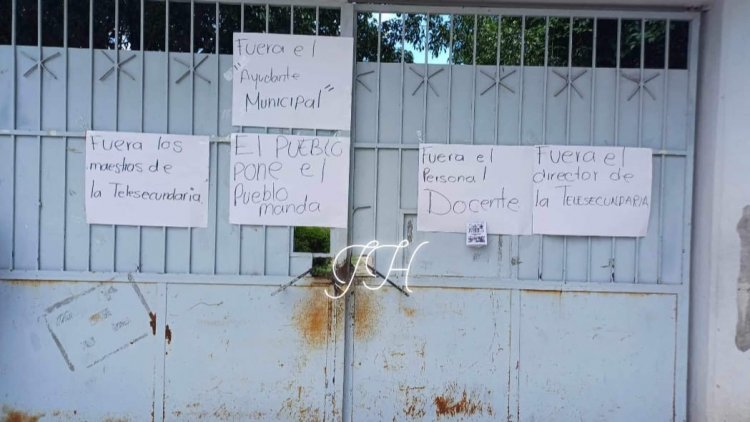 Fuera el
"Ayudante
Municipal"
Fuera los
maestros de
la Telesecundaria
El PUEBLO
PONE el
Pueblo
manda
Fuera el
Personal
Docente
Fuera el
director de
la TELESECUNDARIA
JH